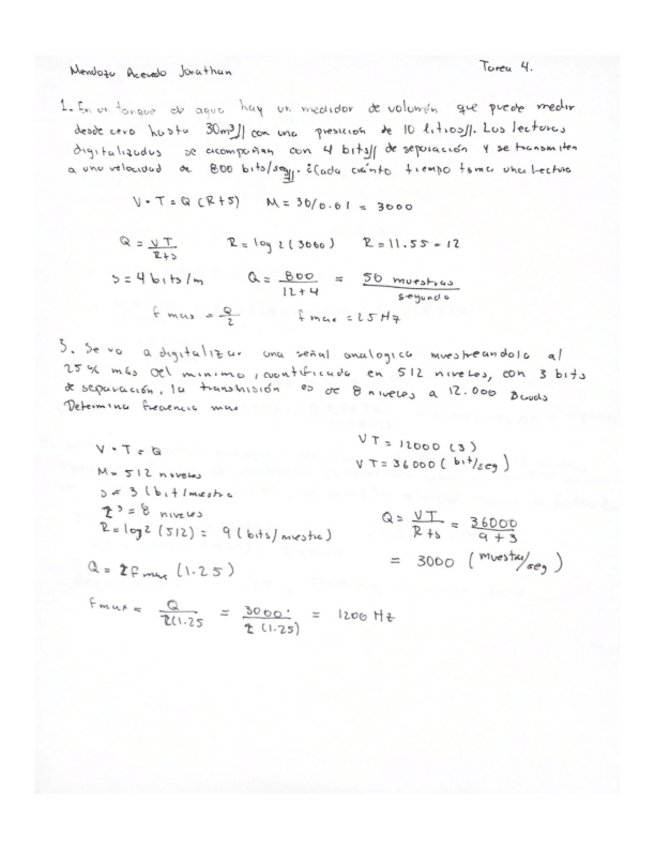 Mendoza Acevedo Jonathan
Tarea 4.
1. En un tanque de agua hay un medidor de volumén que puede medir
desde cero hasta 30m³// con una presicion de 10 litros//. Las lecturas
digitalizadas se acompañan con 4 bits// de separación y se transmiten
a una velocidad de 800 bits/seg//. ¿Cada cuánto tiempo toma una lectura
V·T = Q (R+S) M = 30/0.01 = 3000
Q = VT/R+S R = log 2 (3000) R = 11.55 = 12
S = 4 bits/m Q = 800/12+4 = 50 muestras/segundo
f max = Q/2 f max = 25 Hz
3. Se va a digitalizar una señal analogica muestreandola al
25% mas del minimo, cuantificada en 512 niveles, con 3 bits
de separación, la transmisión es de 8 niveles a 12.000 Bauds
Determina frecuencia max
V·T = Q
M = 512 niveles
S = 3 (bit/muestra
2³ = 8 niveles
R = log2 (512) = 9 (bits/muestra)
Q = 2fmax (1.25)
fmax = Q/2(1.25 = 3000/2 (1.25) = 1200 Hz
VT = 12000 (3)
VT = 36000 (bit/seg)
Q = VT/R+S = 36000/9+3
= 3000 (muestra/seg)